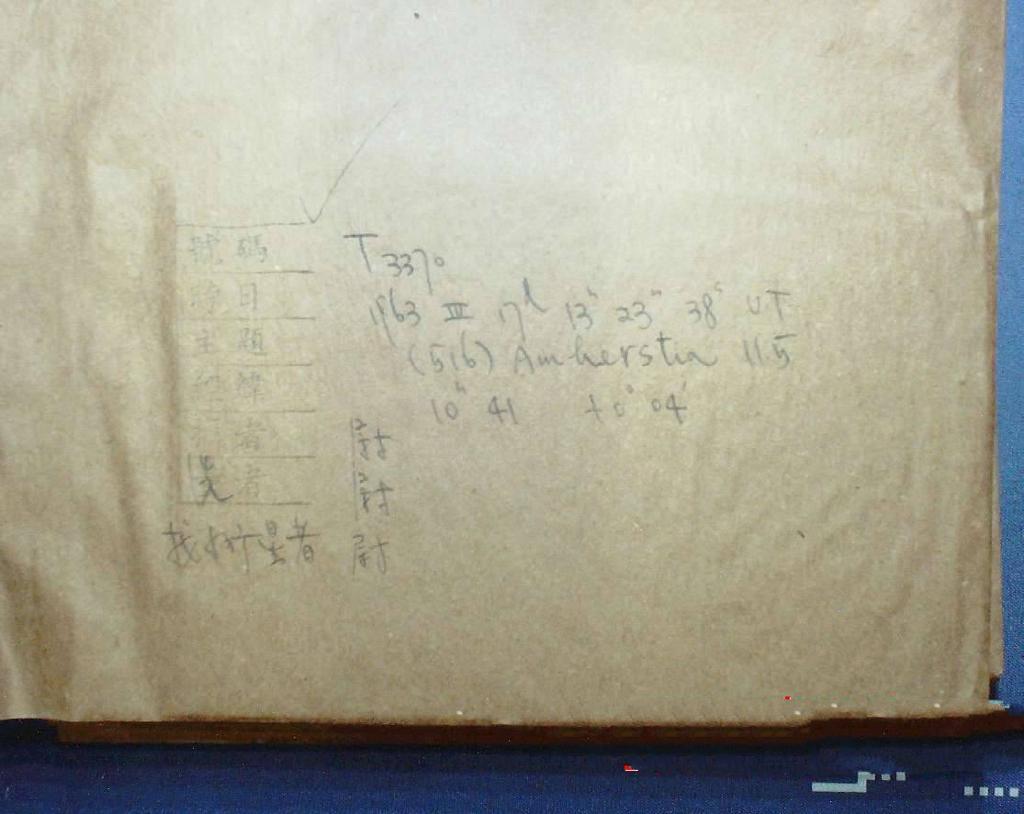 號碼 T 3370
時日 1963 III 17d 13h 23m 38s UT
主題 (516) Amherstia 11.5
經緯 10h 41 +0° 04'
者
者
找小行星者